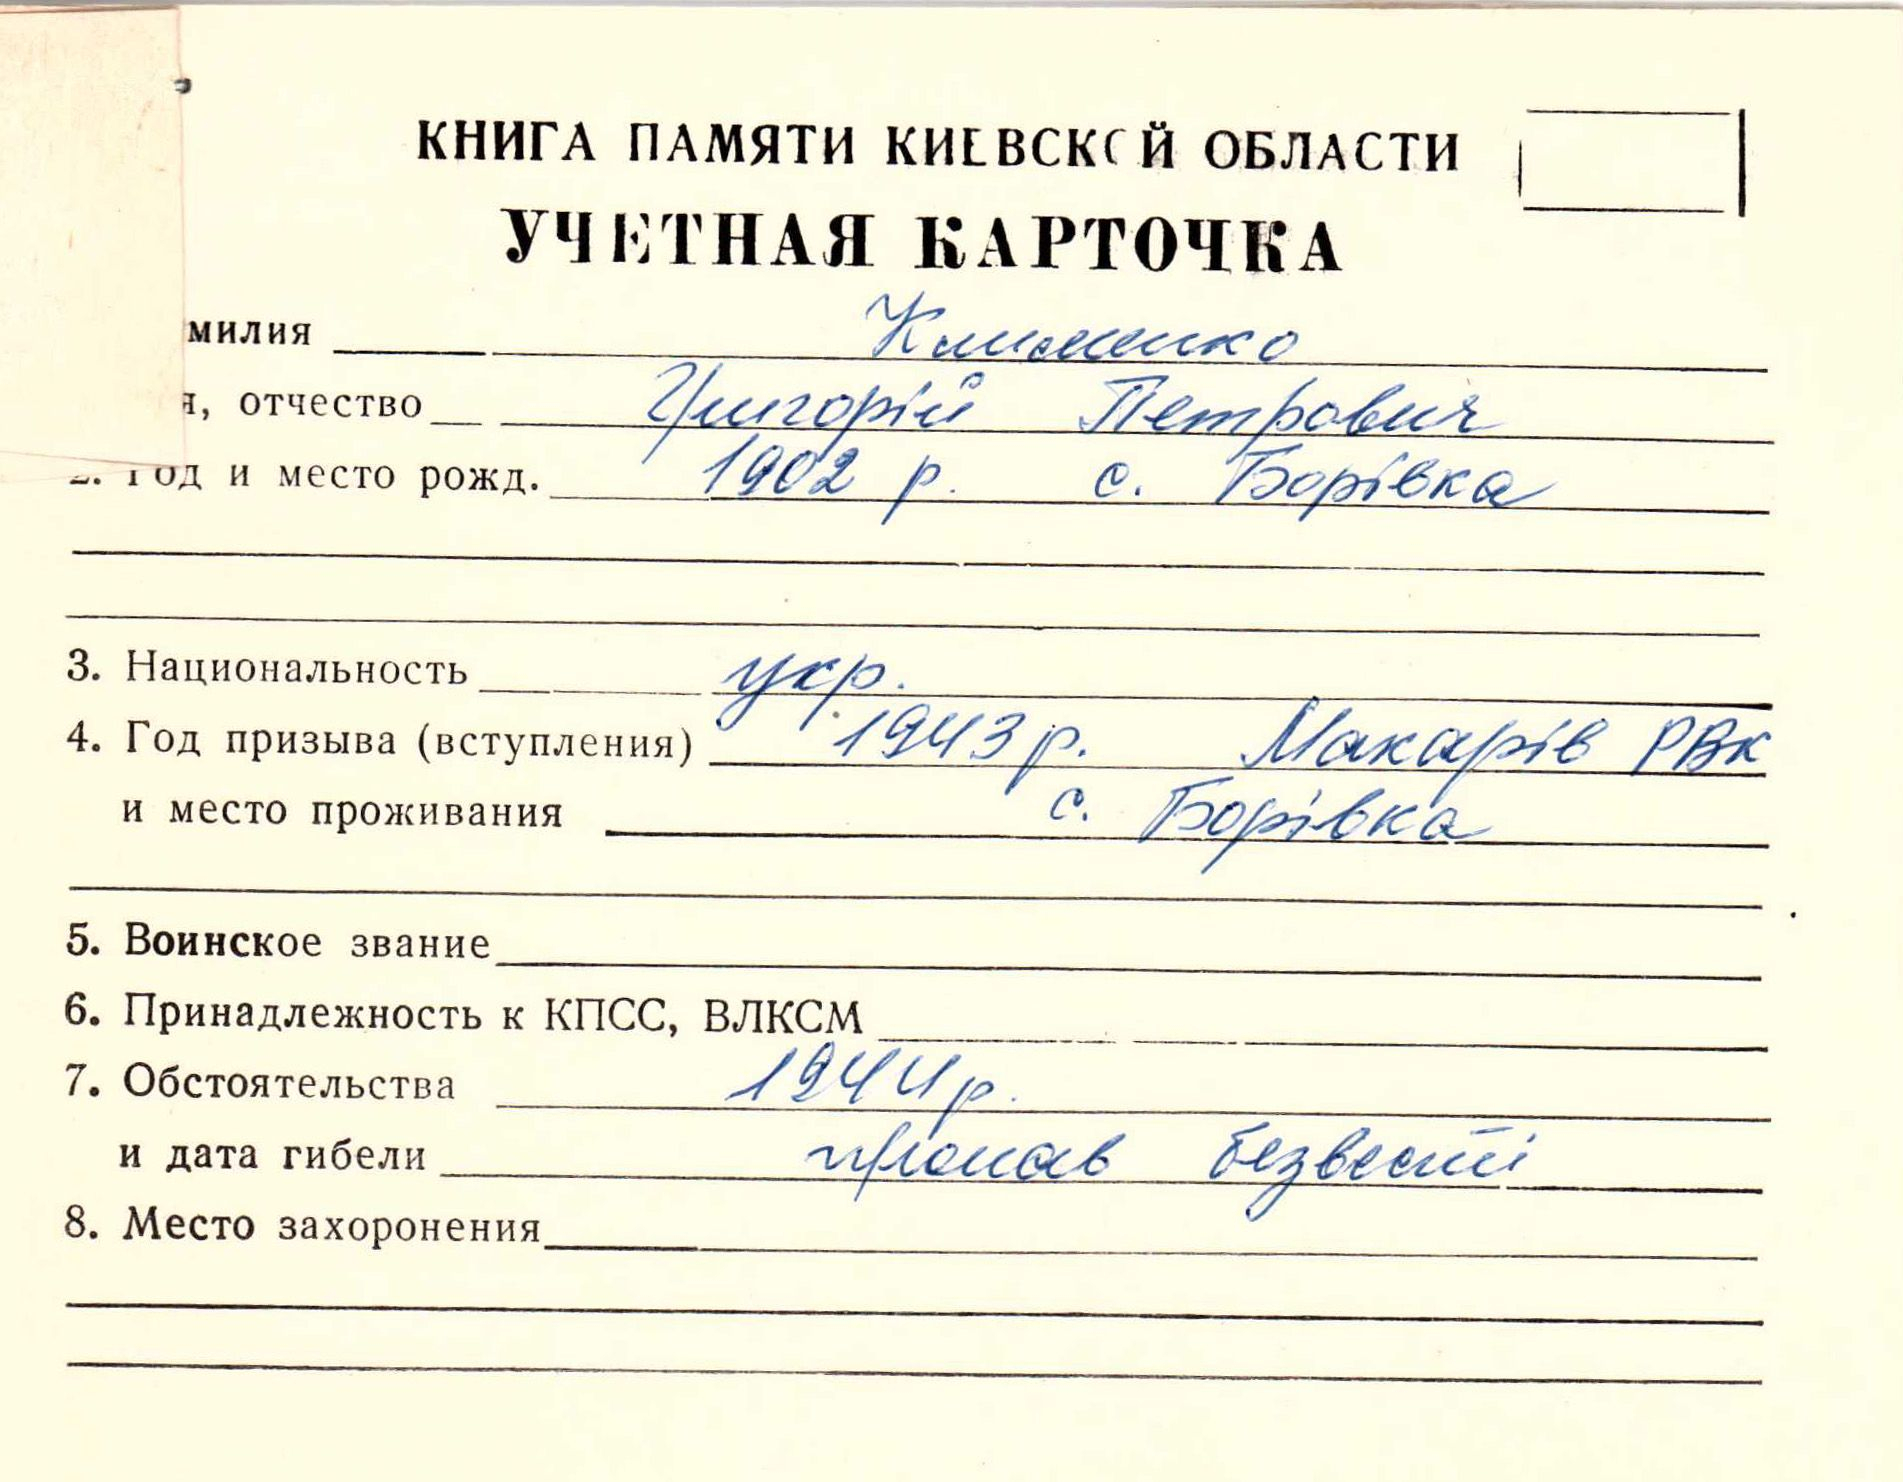 КНИГА ПАМЯТИ КИЕВСКОЙ ОБЛАСТИ
УЧЕТНАЯ КАРТОЧКА
милия Клименко
я, отчество Григорій Петрович
2. Год и место рожд. 1902 р. с. Борівка
3. Национальность укр.
4. Год призыва (вступления) 1943 р. Макарів РВК
и место проживания с. Борівка
5. Воинское звание
6. Принадлежность к КПСС, ВЛКСМ
7. Обстоятельства 1944 р.
и дата гибели пропав безвесті
8. Место захоронения